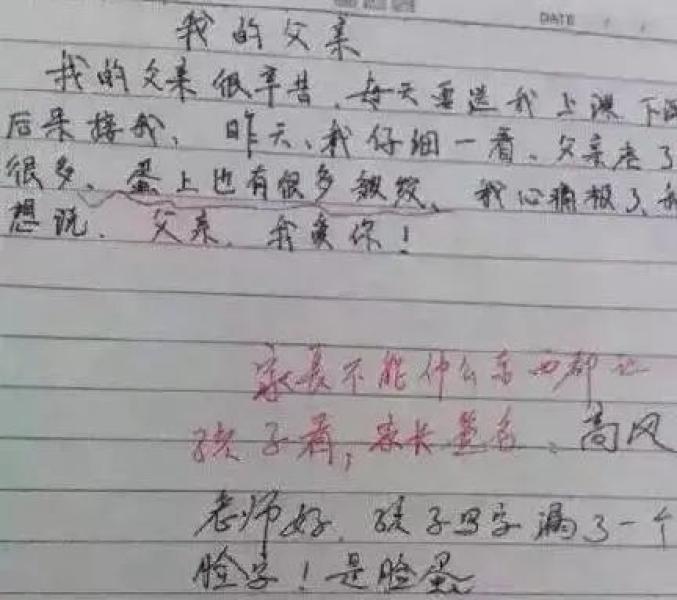 DATE
我的父亲
我的父亲很辛昔、每天要送我上课下课
后来接我、昨天、我仔细一看、父亲老了
很多、蛋上也有很多皱纹、我心痛极了、我
想说、父亲、我爱你!
家长不能什么东西都让
孩子看,家长签名:高风
老师好、孩子写字漏了一个
脸字!是脸蛋